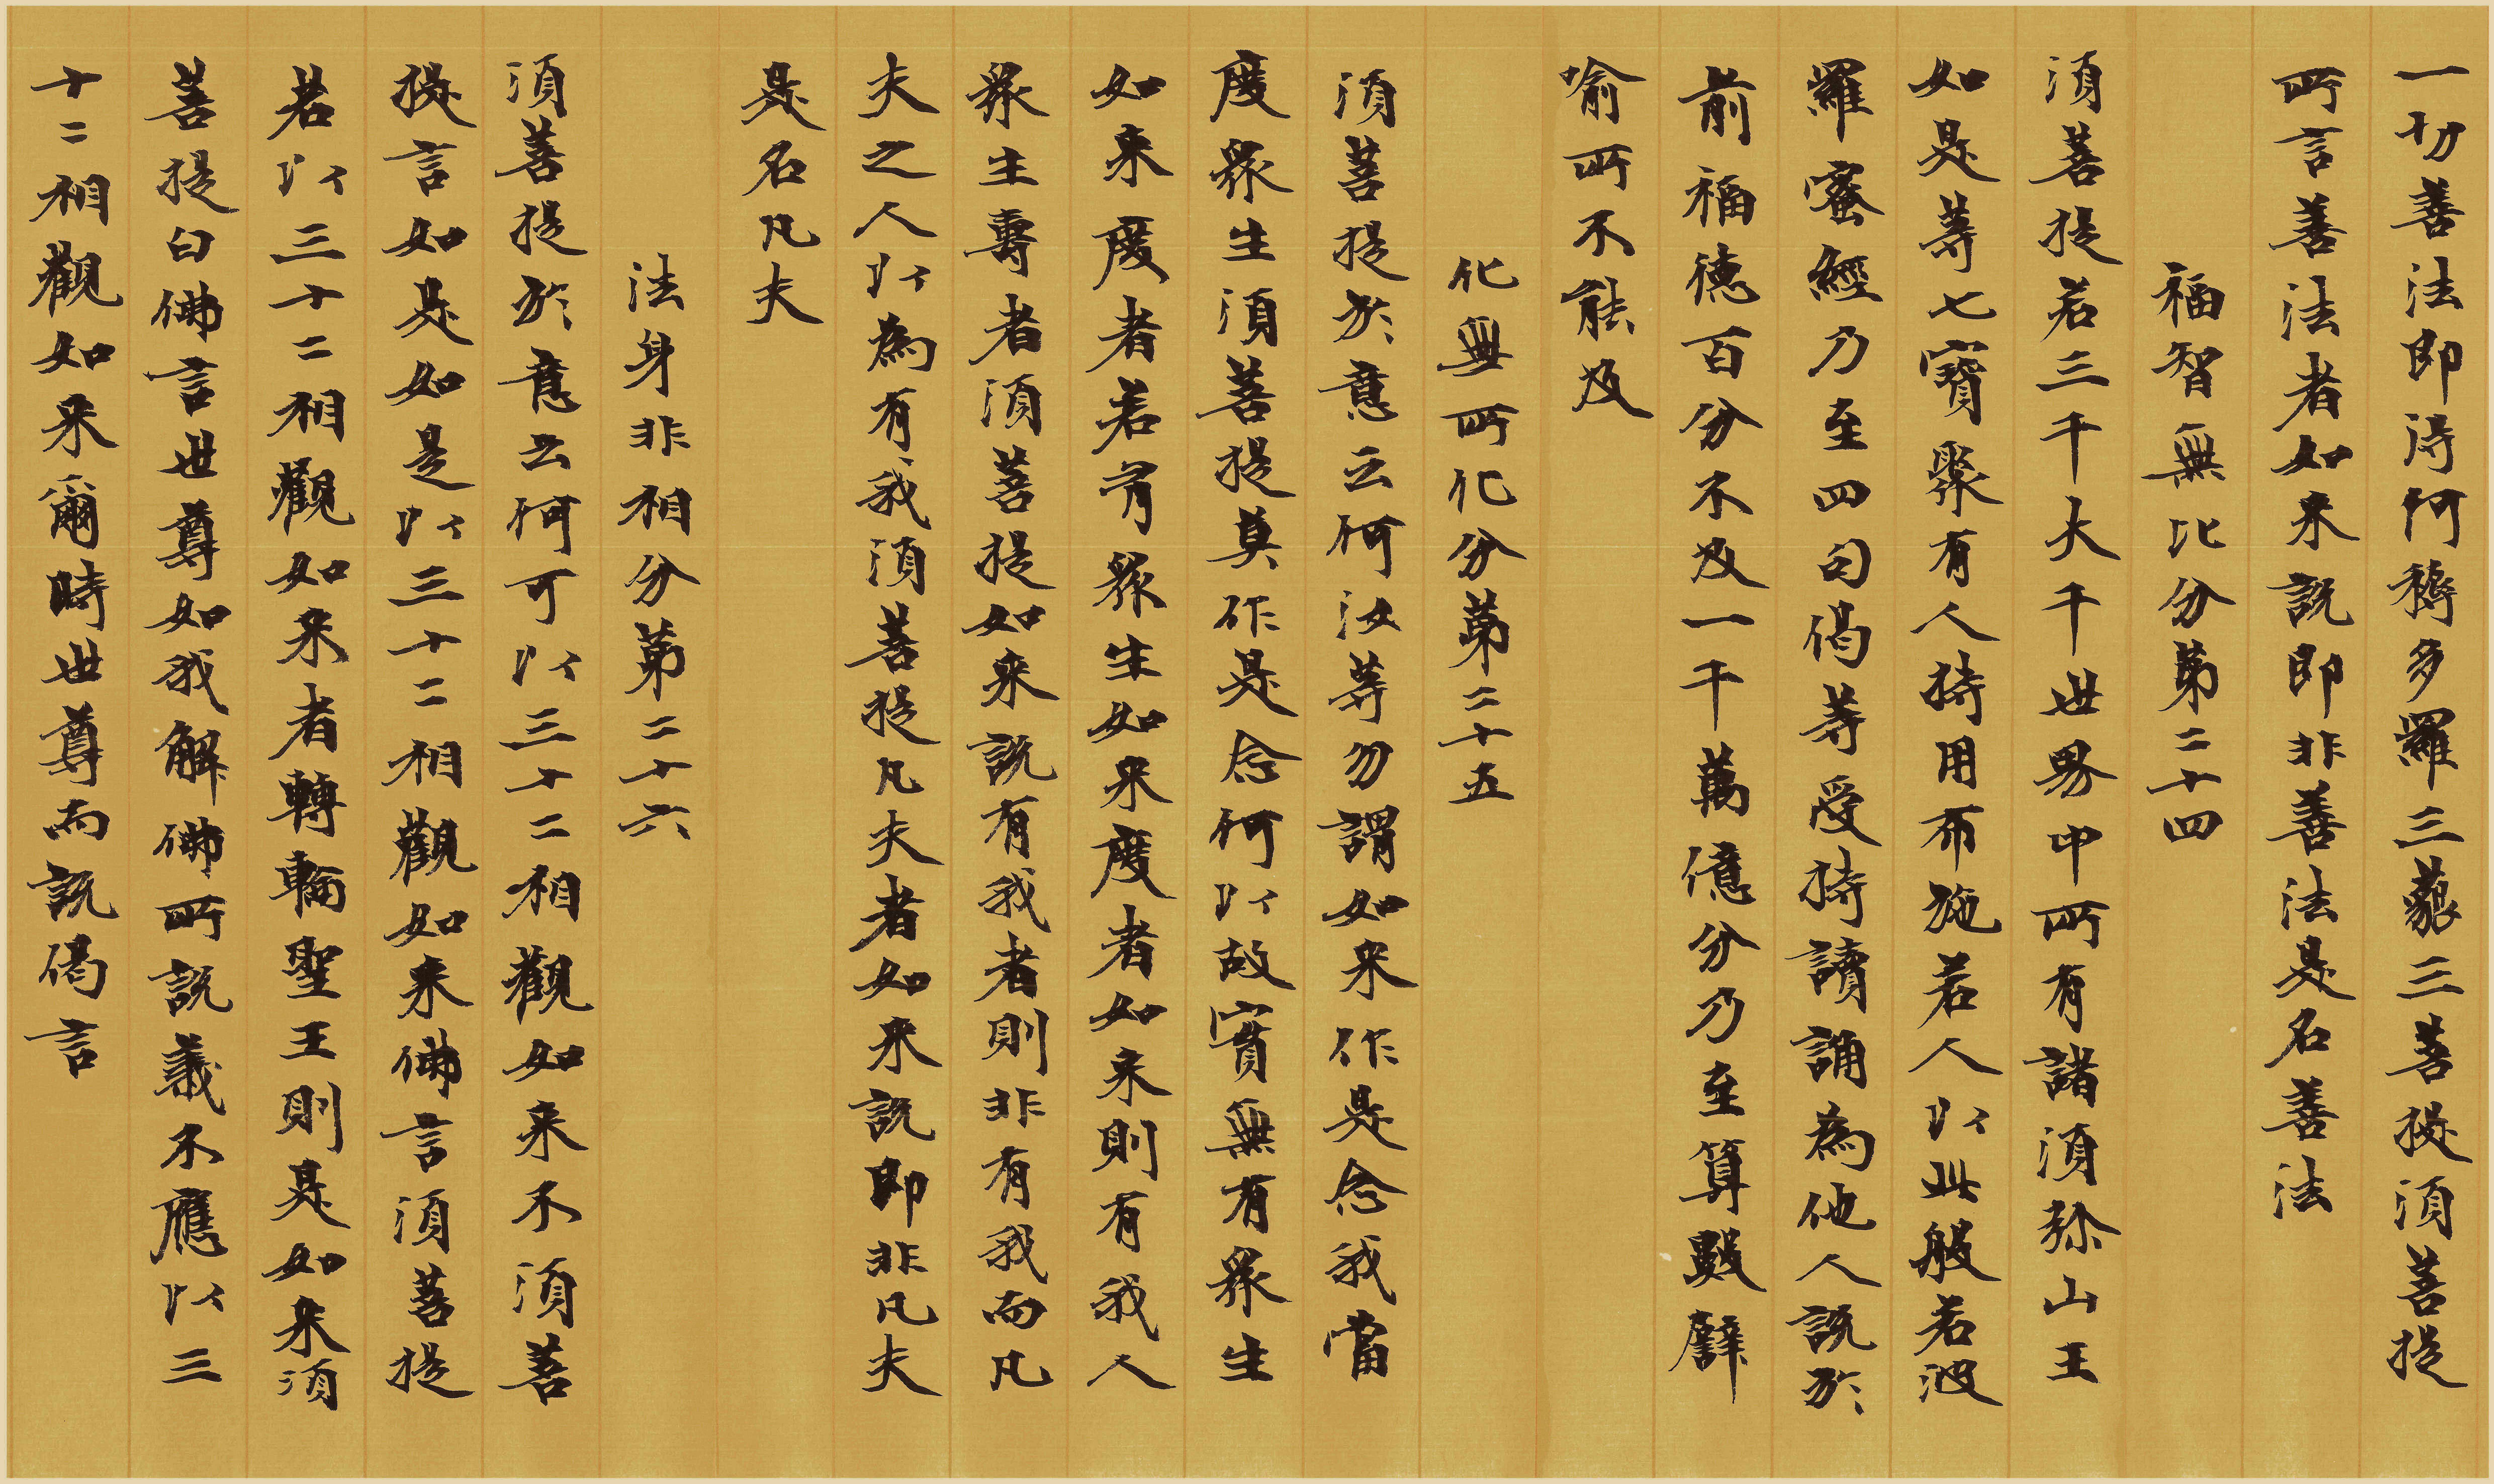 一切善法即得阿耨多羅三藐三菩提須菩提
所言善法者如来說即非善法是名善法
福智無比分第二十四
須菩提若三千大千世界中所有諸須弥山王
如是等七寶聚有人持用布施若人以此般若波
羅蜜經乃至四句偈等受持讀誦為他人說於
前福德百分不及一千萬億分乃至算數譬
喻所不能及
化無所化分第二十五
須菩提於意云何汝等勿謂如来作是念我當
度眾生須菩提莫作是念何以故實無有眾生
如来度者若有眾生如来度者如来則有我人
眾生壽者須菩提如来說有我者則非有我而凡
夫之人以為有我須菩提凡夫者如来說即非凡夫
是名凡夫
法身非相分第二十六
須菩提於意云何可以三十二相觀如来不須菩
提言如是如是以三十二相觀如来佛言須菩提
若以三十二相觀如来者轉輪聖王則是如来須
菩提白佛言世尊如我解佛所說義不應以三
十二相觀如来爾時世尊而說偈言